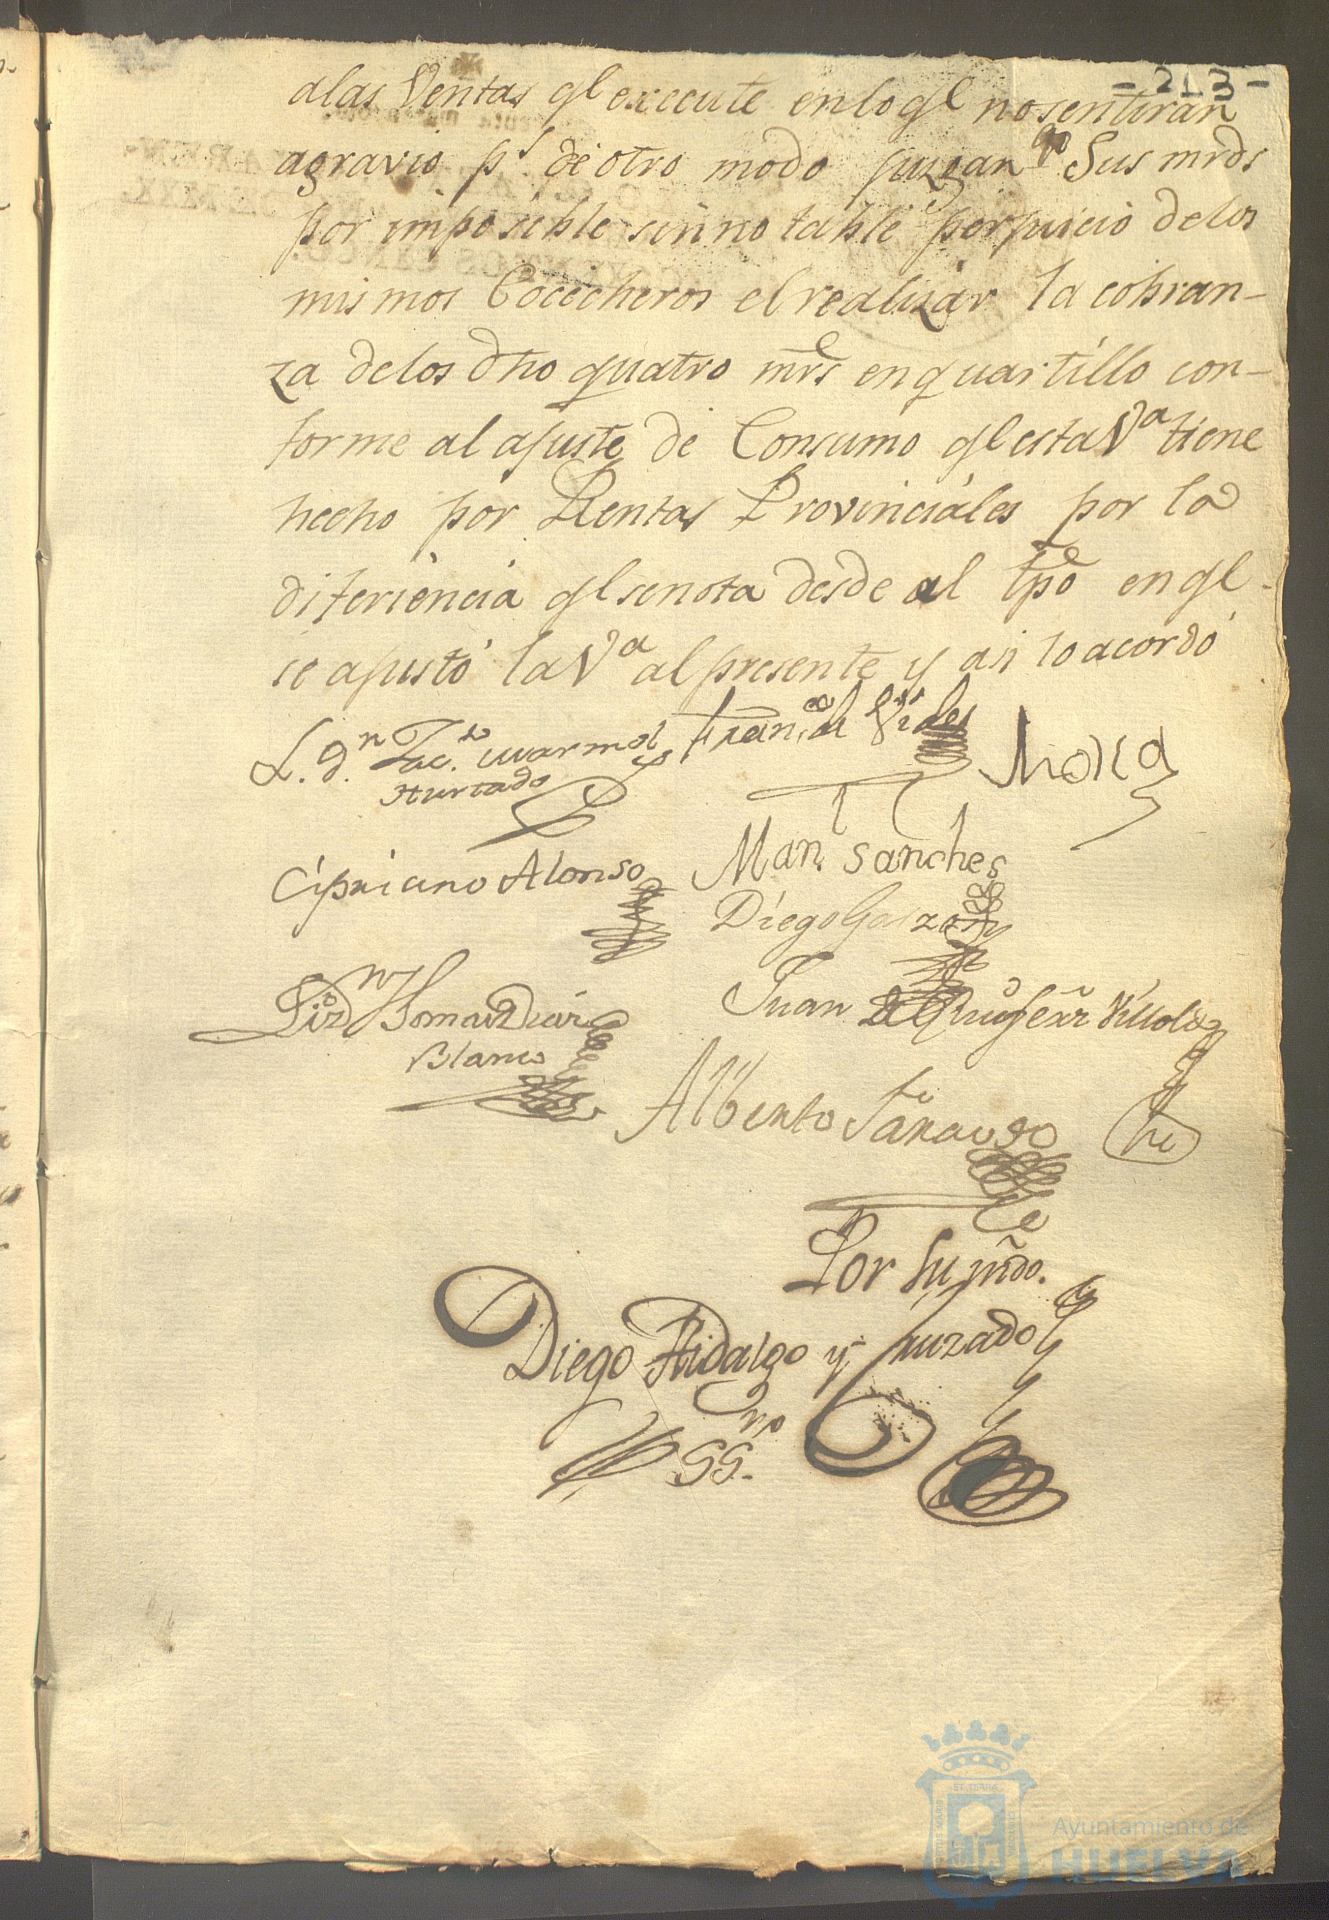 -213-
alas Ventas ql execute enlo ql nosentiran
agravio ps. de otro modo juzgan qe Sus mrds
por imposible sinnotable perjuicio delos
mismos Cocecheros el realizar la cobran-
za delos dho quatro mrs enquartillo con-
forme al ajuste de Consumo ql esta Va tiene
hecho por Rentas Provinciales por la
diferiencia ql senota desde al tpo en ql
se ajustó la Va al presente y asi lo acordó
L. Dn. Jac.to Marmol
Hurtado
Fran.co de Vides
Mora
Cipriano Alonso
Man. Sanches
Diego Garzon
Thomas Diaz
Blanco
Juan
Alberto
Por su mdo.
Diego Hidalgo y Juzado
SSno.
Ayuntamiento de
HUELVA